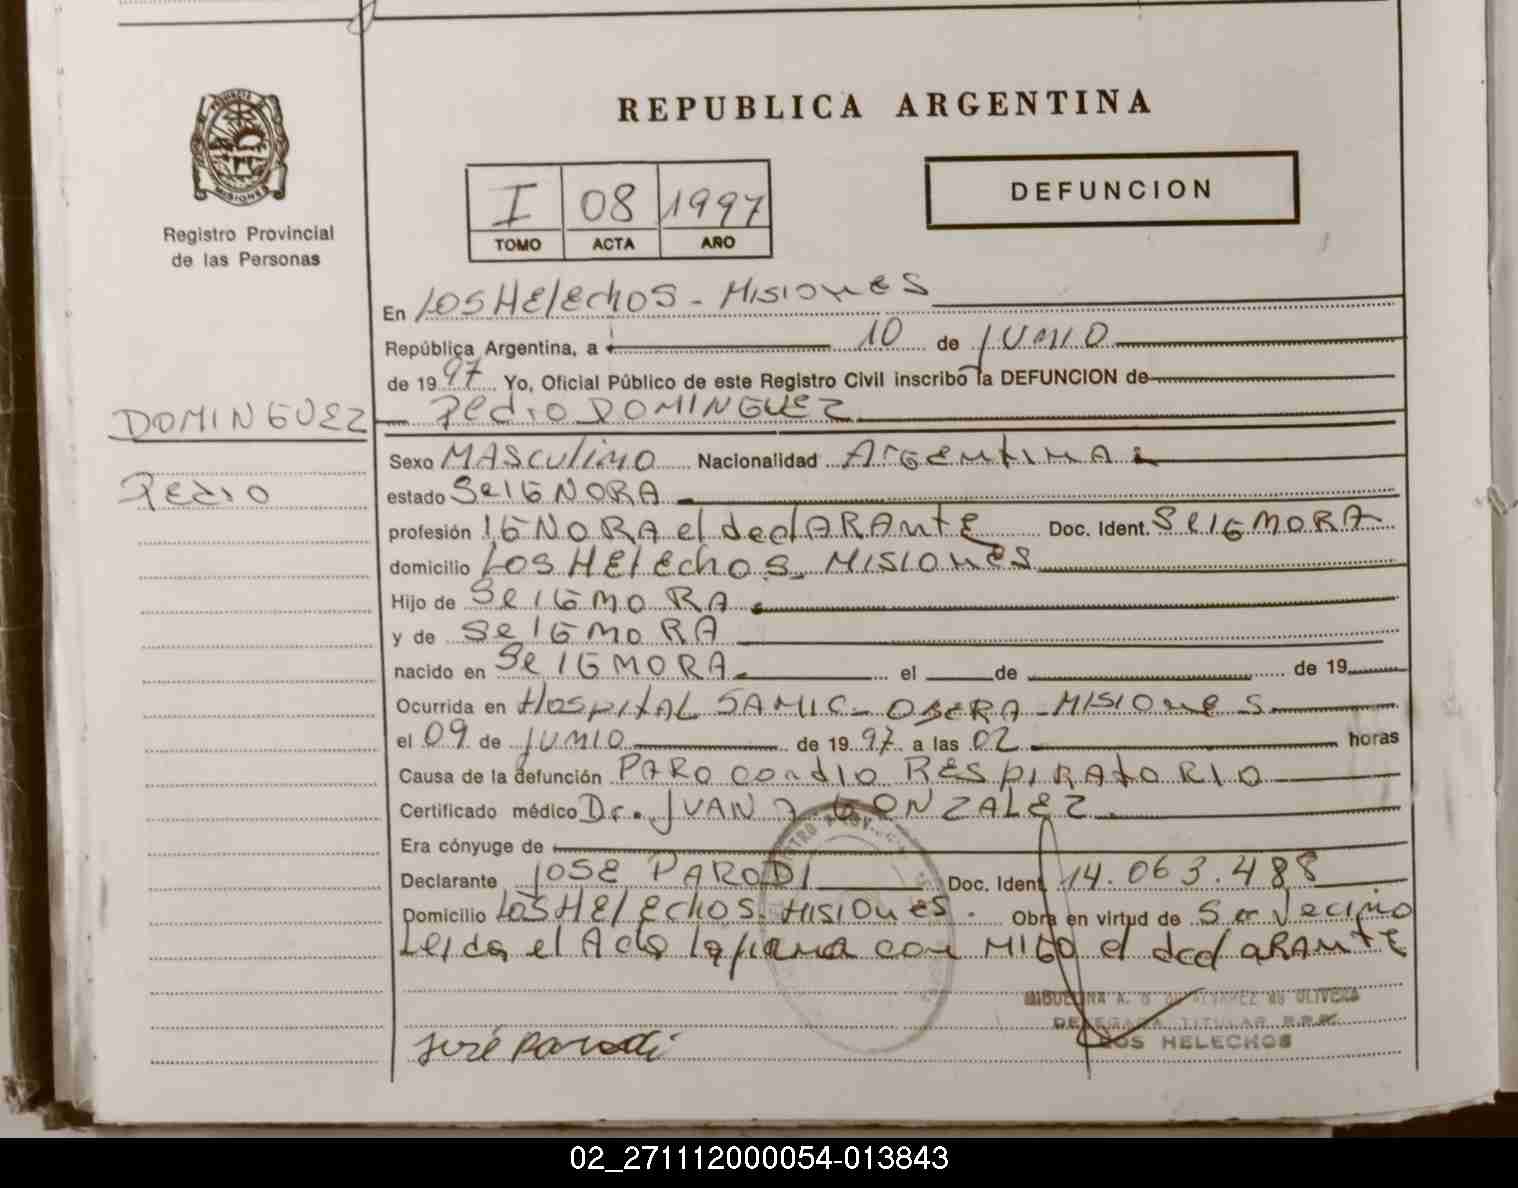 REPUBLICA ARGENTINA
PROVINCIA DE
MISIONES
Registro Provincial
de las Personas
I 08 1997
TOMO ACTA AÑO
DEFUNCION
En Los Helechos - Misiones
República Argentina, a 10 de Junio
de 1997 Yo, Oficial Público de este Registro Civil inscribo la DEFUNCION de
Pedro DOMINGUEZ
DOMINGUEZ
Pedro
Sexo MASculino Nacionalidad ArGentinA
estado Se IGNORA
profesión IGNORA el declARAnte Doc. Ident. Se IGNORA
domicilio Los Helechos - Misiones
Hijo de Se IGNORA
y de Se IGNORA
nacido en Se IGNORA el de de 19
Ocurrida en HospitAL SAMIC - OBERA - MISIONes
el 09 de Junio de 1997 a las 02 horas
Causa de la defunción PARO CArdIO RESpIRAtORIO
Certificado médico Dr. JUAN GONZALEZ
Era cónyuge de
Declarante JOSE PARODI Doc. Ident. 14.063.488
Domicilio Los Helechos - Misiones. Obra en virtud de Ser Vecino
Leida el Acta la firma conMIGO el declARAnte
José Parodi
DELEGADA TITULAR R.P.P.
LOS HELECHOS
02_271112000054-013843